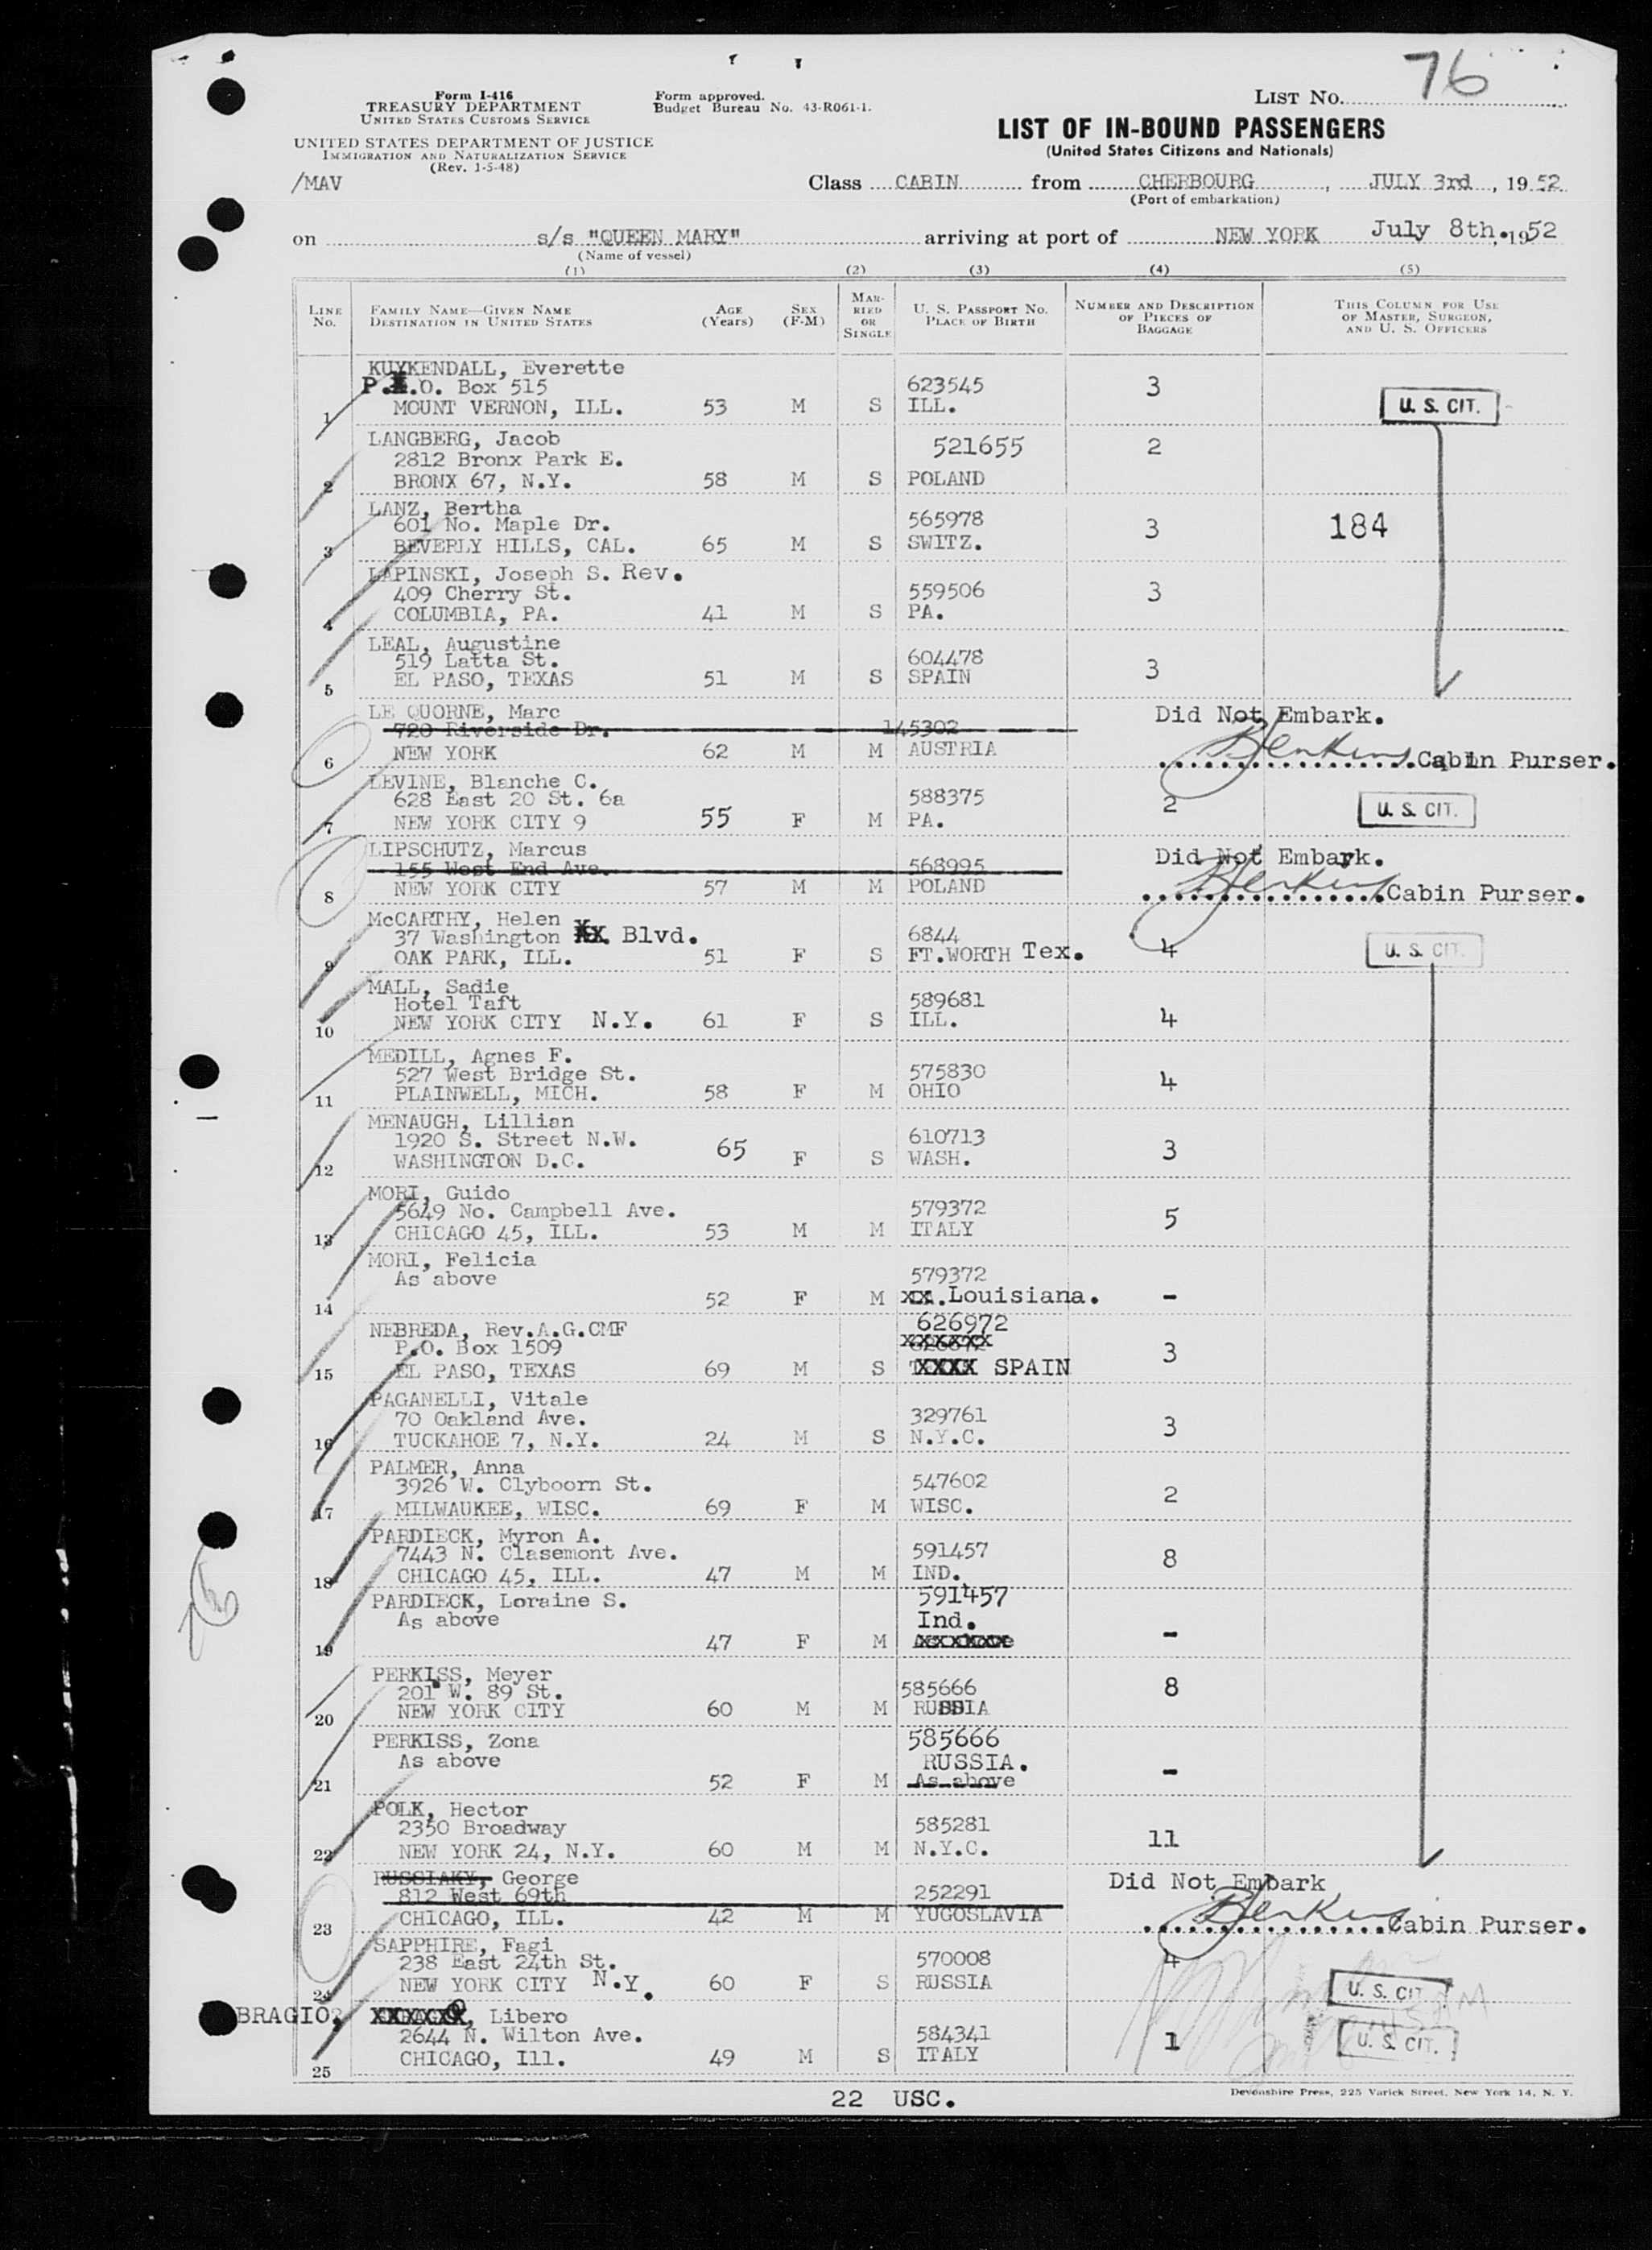 76
Form I-416
TREASURY DEPARTMENT
UNITED STATES CUSTOMS SERVICE
Form approved.
Budget Bureau No. 43-R061-1.
LIST NO.
UNITED STATES DEPARTMENT OF JUSTICE
IMMIGRATION AND NATURALIZATION SERVICE
(Rev. 1-5-48)
LIST OF IN-BOUND PASSENGERS
(United States Citizens and Nationals)
/MAV
Class CABIN from CHERBOURG, JULY 3rd, 1952
(Port of embarkation)
on s/s "QUEEN MARY" arriving at port of NEW YORK July 8th, 1952
(Name of vessel)
(1) (2) (3) (4) (5)
LINE NO. FAMILY NAME—GIVEN NAME DESTINATION IN UNITED STATES AGE (Years) SEX (F-M) MARRIED OR SINGLE U. S. PASSPORT NO. PLACE OF BIRTH NUMBER AND DESCRIPTION OF PIECES OF BAGGAGE THIS COLUMN FOR USE OF MASTER, SURGEON, AND U. S. OFFICERS
KUYKENDALL, Everette
P.O. Box 515 623545 3
1 MOUNT VERNON, ILL. 53 M S ILL. U. S. CIT.
LANGBERG, Jacob 521655 2
2812 Bronx Park E.
2 BRONX 67, N.Y. 58 M S POLAND
LANZ, Bertha
601 No. Maple Dr. 565978 3 184
3 BEVERLY HILLS, CAL. 65 M S SWITZ.
LAPINSKI, Joseph S. Rev.
409 Cherry St. 559506 3
4 COLUMBIA, PA. 41 M S PA.
LEAL, Augustine
519 Latta St. 604478 3
5 EL PASO, TEXAS 51 M S SPAIN
LE QUORNE, Marc Did Not Embark.
720 Riverside Dr. 145302
6 NEW YORK 62 M M AUSTRIA Cabin Purser.
LEVINE, Blanche C.
628 East 20 St. 6a 588375 2
7 NEW YORK CITY 9 55 F M PA. U. S. CIT.
LIPSCHUTZ, Marcus Did Not Embark.
155 West End Ave. 568995
8 NEW YORK CITY 57 M M POLAND Cabin Purser.
McCARTHY, Helen
37 Washington XX Blvd. 6844 4
9 OAK PARK, ILL. 51 F S FT.WORTH Tex. U. S. CIT.
MALL, Sadie
Hotel Taft 589681 4
10 NEW YORK CITY N.Y. 61 F S ILL.
MEDILL, Agnes F.
527 West Bridge St. 575830 4
11 PLAINWELL, MICH. 58 F M OHIO
MENAUGH, Lillian
1920 S. Street N.W. 610713 3
12 WASHINGTON D.C. 65 F S WASH.
MORI, Guido
5649 No. Campbell Ave. 579372 5
13 CHICAGO 45, ILL. 53 M M ITALY
MORI, Felicia
As above 579372
14 52 F M XX.Louisiana. -
NEBREDA, Rev.A.G.CMF 626972
P.O. Box 1509 XXXXXX 3
15 EL PASO, TEXAS 69 M S XXXX SPAIN
PAGANELLI, Vitale
70 Oakland Ave. 329761 3
16 TUCKAHOE 7, N.Y. 24 M S N.Y.C.
PALMER, Anna
3926 W. Clyboorn St. 547602 2
17 MILWAUKEE, WISC. 69 F M WISC.
PARDIECK, Myron A.
7443 N. Clasemont Ave. 591457 8
18 CHICAGO 45, ILL. 47 M M IND.
PARDIECK, Loraine S. 591457
As above Ind.
19 47 F M XXXXXXX -
PERKISS, Meyer
201 W. 89 St. 585666 8
20 NEW YORK CITY 60 M M RUSSIA
PERKISS, Zona 585666
As above RUSSIA.
21 52 F M As above -
POLK, Hector
2350 Broadway 585281 11
22 NEW YORK 24, N.Y. 60 M M N.Y.C.
RUSSIAKY, George Did Not Embark
812 West 69th 252291
23 CHICAGO, ILL. 42 M M YUGOSLAVIA Cabin Purser.
SAPPHIRE, Fagi
238 East 24th St. 570008 4
24 NEW YORK CITY N.Y. 60 F S RUSSIA U. S. CIT.
XXXXXX, Libero
2644 N. Wilton Ave. 584341 1 U. S. CIT.
25 CHICAGO, Ill. 49 M S ITALY
Devonshire Press, 225 Varick Street, New York 14, N. Y.
22 USC.